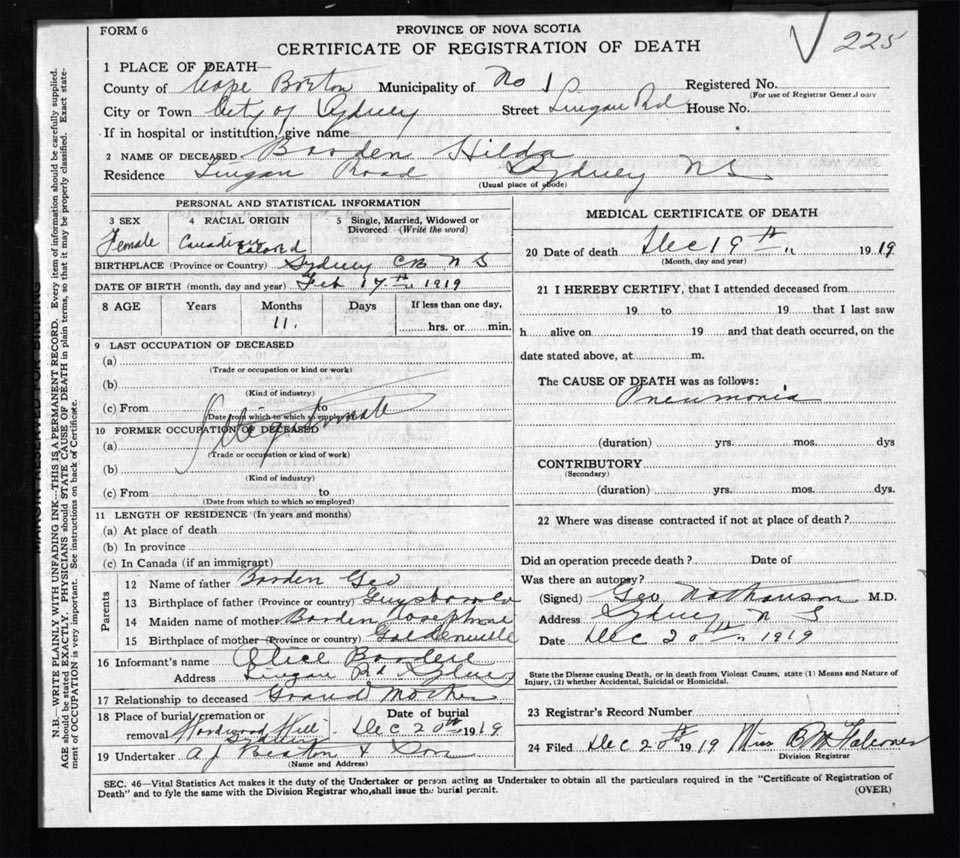 FORM 6
PROVINCE OF NOVA SCOTIA
225
CERTIFICATE OF REGISTRATION OF DEATH
1 PLACE OF DEATH—
County of Cape Breton Municipality of No 1 Registered No.
(For use of Registrar General only)
City or Town City of Sydney Street Lingan Rd House No.
If in hospital or institution, give name
2 NAME OF DECEASED Borden Hilda
Residence Lingan Road Sydney N S
(Usual place of abode)
PERSONAL AND STATISTICAL INFORMATION
3 SEX 4 RACIAL ORIGIN 5 Single, Married, Widowed or Divorced (Write the word)
Female Canadian Colored
BIRTHPLACE (Province or Country) Sydney C B N S
DATE OF BIRTH (month, day and year) Feb 17th 1919
8 AGE Years Months Days If less than one day,
11. hrs. or min.
9 LAST OCCUPATION OF DECEASED
(a)
(Trade or occupation or kind of work)
(b)
(Kind of industry)
(c) From to
(Date from which to which so employed)
10 FORMER OCCUPATION OF DECEASED
(a)
(Trade or occupation or kind of work)
(b)
(Kind of industry)
(c) From to
(Date from which to which so employed)
11 LENGTH OF RESIDENCE (In years and months)
(a) At place of death
(b) In province
(c) In Canada (if an immigrant)
Parents
12 Name of father Borden Geo
13 Birthplace of father (Province or country) Guysboro Co
14 Maiden name of mother Borden Josephine
15 Birthplace of mother (Province or country) Goldenville
16 Informant's name Alice Borden
Address Lingan Rd Sydney
17 Relationship to deceased Grand Mother
18 Place of burial, cremation or removal Hardwood Hill Date of burial Dec 20th 1919
19 Undertaker A J Beaton & Son
(Name and Address)
MEDICAL CERTIFICATE OF DEATH
20 Date of death Dec 19th 1919
(Month, day and year)
21 I HEREBY CERTIFY, that I attended deceased from
19 to 19 that I last saw
h alive on 19 and that death occurred, on the
date stated above, at m.
The CAUSE OF DEATH was as follows:
Pneumonia
(duration) yrs. mos. dys
CONTRIBUTORY
(Secondary)
(duration) yrs. mos. dys.
22 Where was disease contracted if not at place of death?
Did an operation precede death? Date of
Was there an autopsy?
(Signed) Geo Nathanson M.D.
Address Sydney N S
Date Dec 20th 1919
State the Disease causing Death, or in death from Violent Causes, state (1) Means and Nature of
Injury, (2) whether Accidental, Suicidal or Homicidal.
23 Registrar's Record Number
24 Filed Dec 20th 1919 Miss B McFalconer
Division Registrar
SEC. 46—Vital Statistics Act makes it the duty of the Undertaker or person acting as Undertaker to obtain all the particulars required in the "Certificate of Registration of
Death" and to fyle the same with the Division Registrar who shall issue the burial permit.
(OVER)
MARGIN RESERVED FOR BINDING
N.B.—WRITE PLAINLY WITH UNFADING INK—THIS IS A PERMANENT RECORD. Every item of information should be carefully supplied.
AGE should be stated EXACTLY. PHYSICIANS should STATE CAUSE OF DEATH in plain terms, so that it may be properly classified. Exact state-
ment of OCCUPATION is very important. See instructions on back of Certificate.